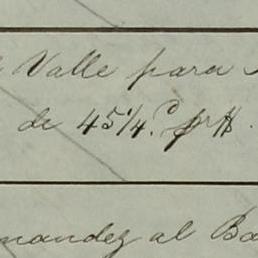 Valle para
de 45 1/4.
nandez al Ba